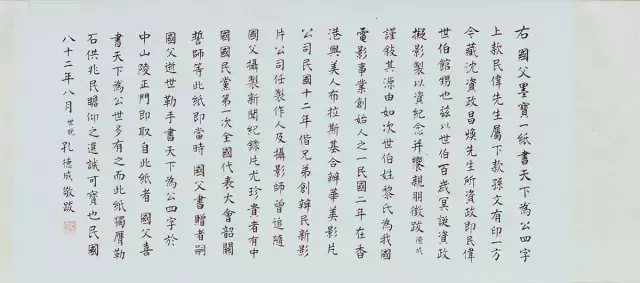 右 國父墨寶一紙書天下為公四字
上款民偉先生屬下款孫文有印一方
今藏沈資政昌煥先生所資政即民偉
世伯館甥也茲以世伯百歲冥誕資政
擬影製以資紀念并饗親朋徵跋德成
謹敍其源由如次世伯姓黎氏為我國
電影事業創始人之一民國二年在香
港與美人布拉斯基合辦華美影片
公司民國十二年偕兄弟創辦民新影
片公司任製作人及攝影師曾追隨
國父攝製新聞紀錄片尤珍貴者有中
國國民黨第一次全國代表大會韶關
誓師等此紙即當時 國父書贈者嗣
國父逝世勒手書天下為公四字於
中山陵正門即取自此紙者 國父喜
書天下為公世多有之而此紙獨膺勒
石供兆民瞻仰之選誠可寶也民國
八十二年八月世晚孔德成敬跋